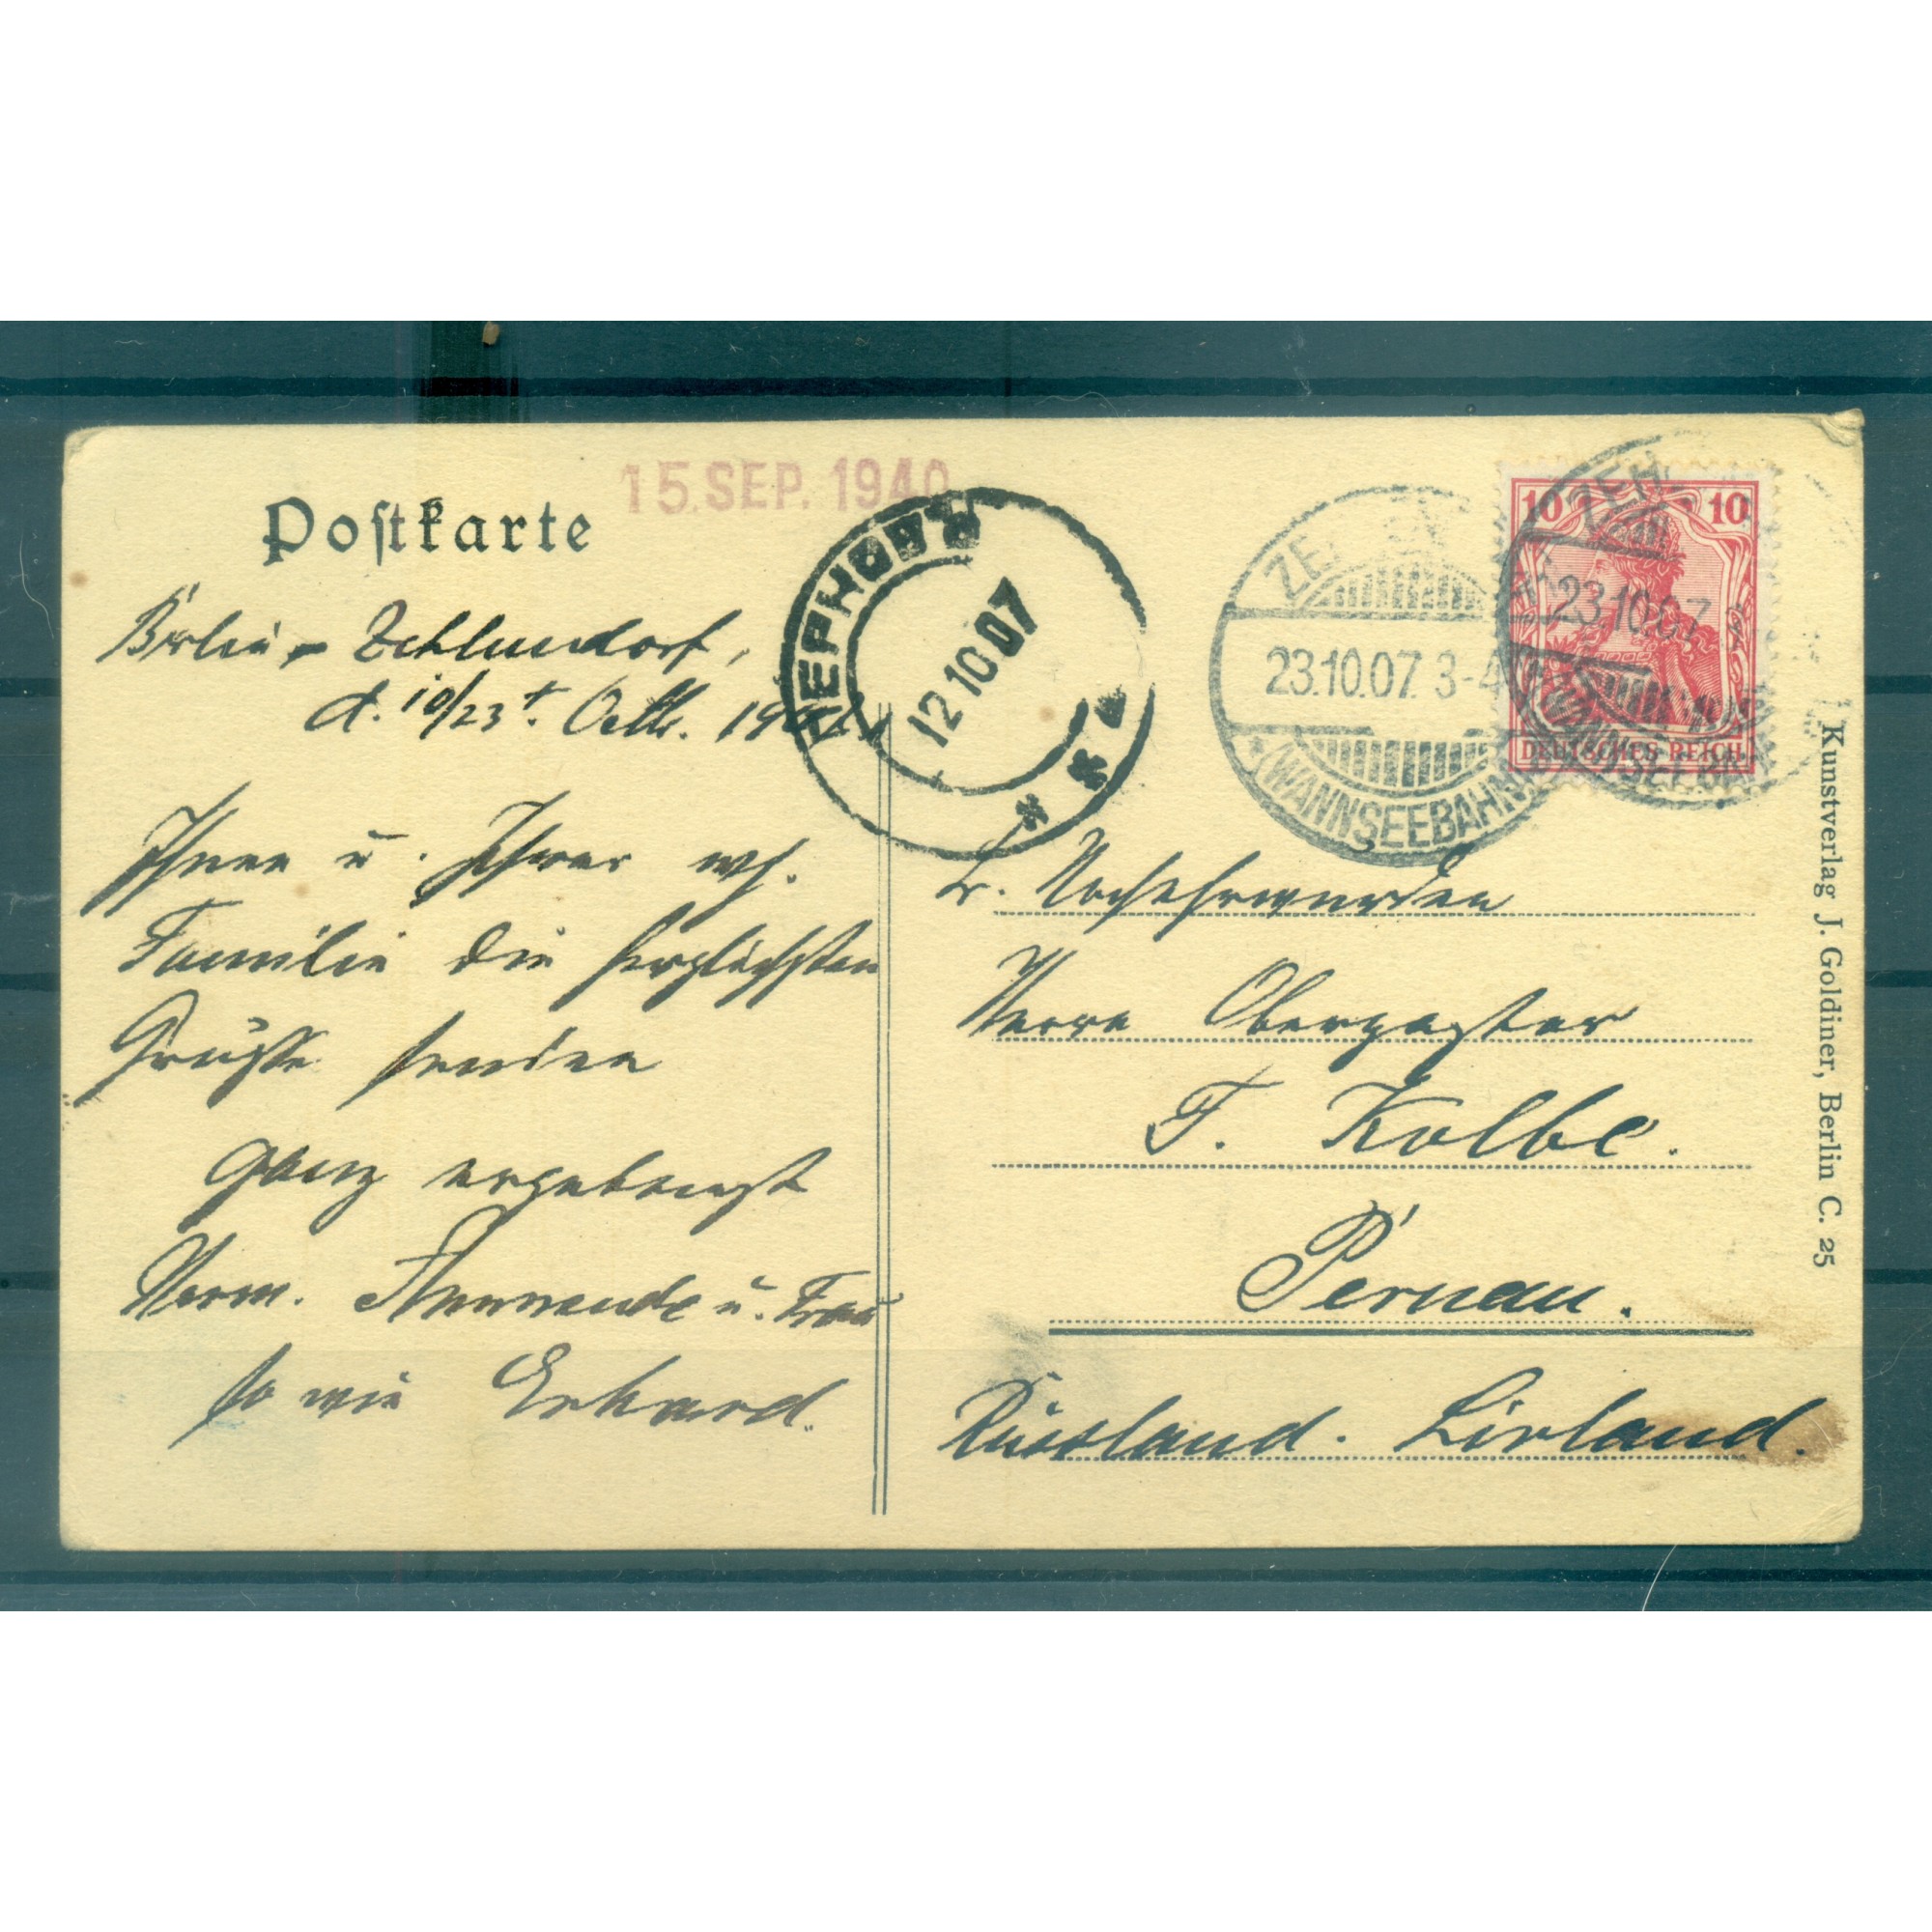 15.SEP.1940
Postkarte
Berlin - Zehlendorf,
d. 10/23t. Octb. 1907.
Ihnen u. Ihrer w.
Familie die herzlichsten
Grüsse senden
ganz ergebenst
Herm. u. Frau
so wie Erhard.
ПЕРНОВЪ
12 10 07
ZE
23.10.07. 3-4
(WANNSEEBAHN)
ZEH
23.10.07.
10 10
DEUTSCHES REICH
Sr. Hochehrwürden
Herrn Oberpastor
F. Kolbe.
Pernau.
Russland. Livland.
Kunstverlag J. Goldiner, Berlin C. 25